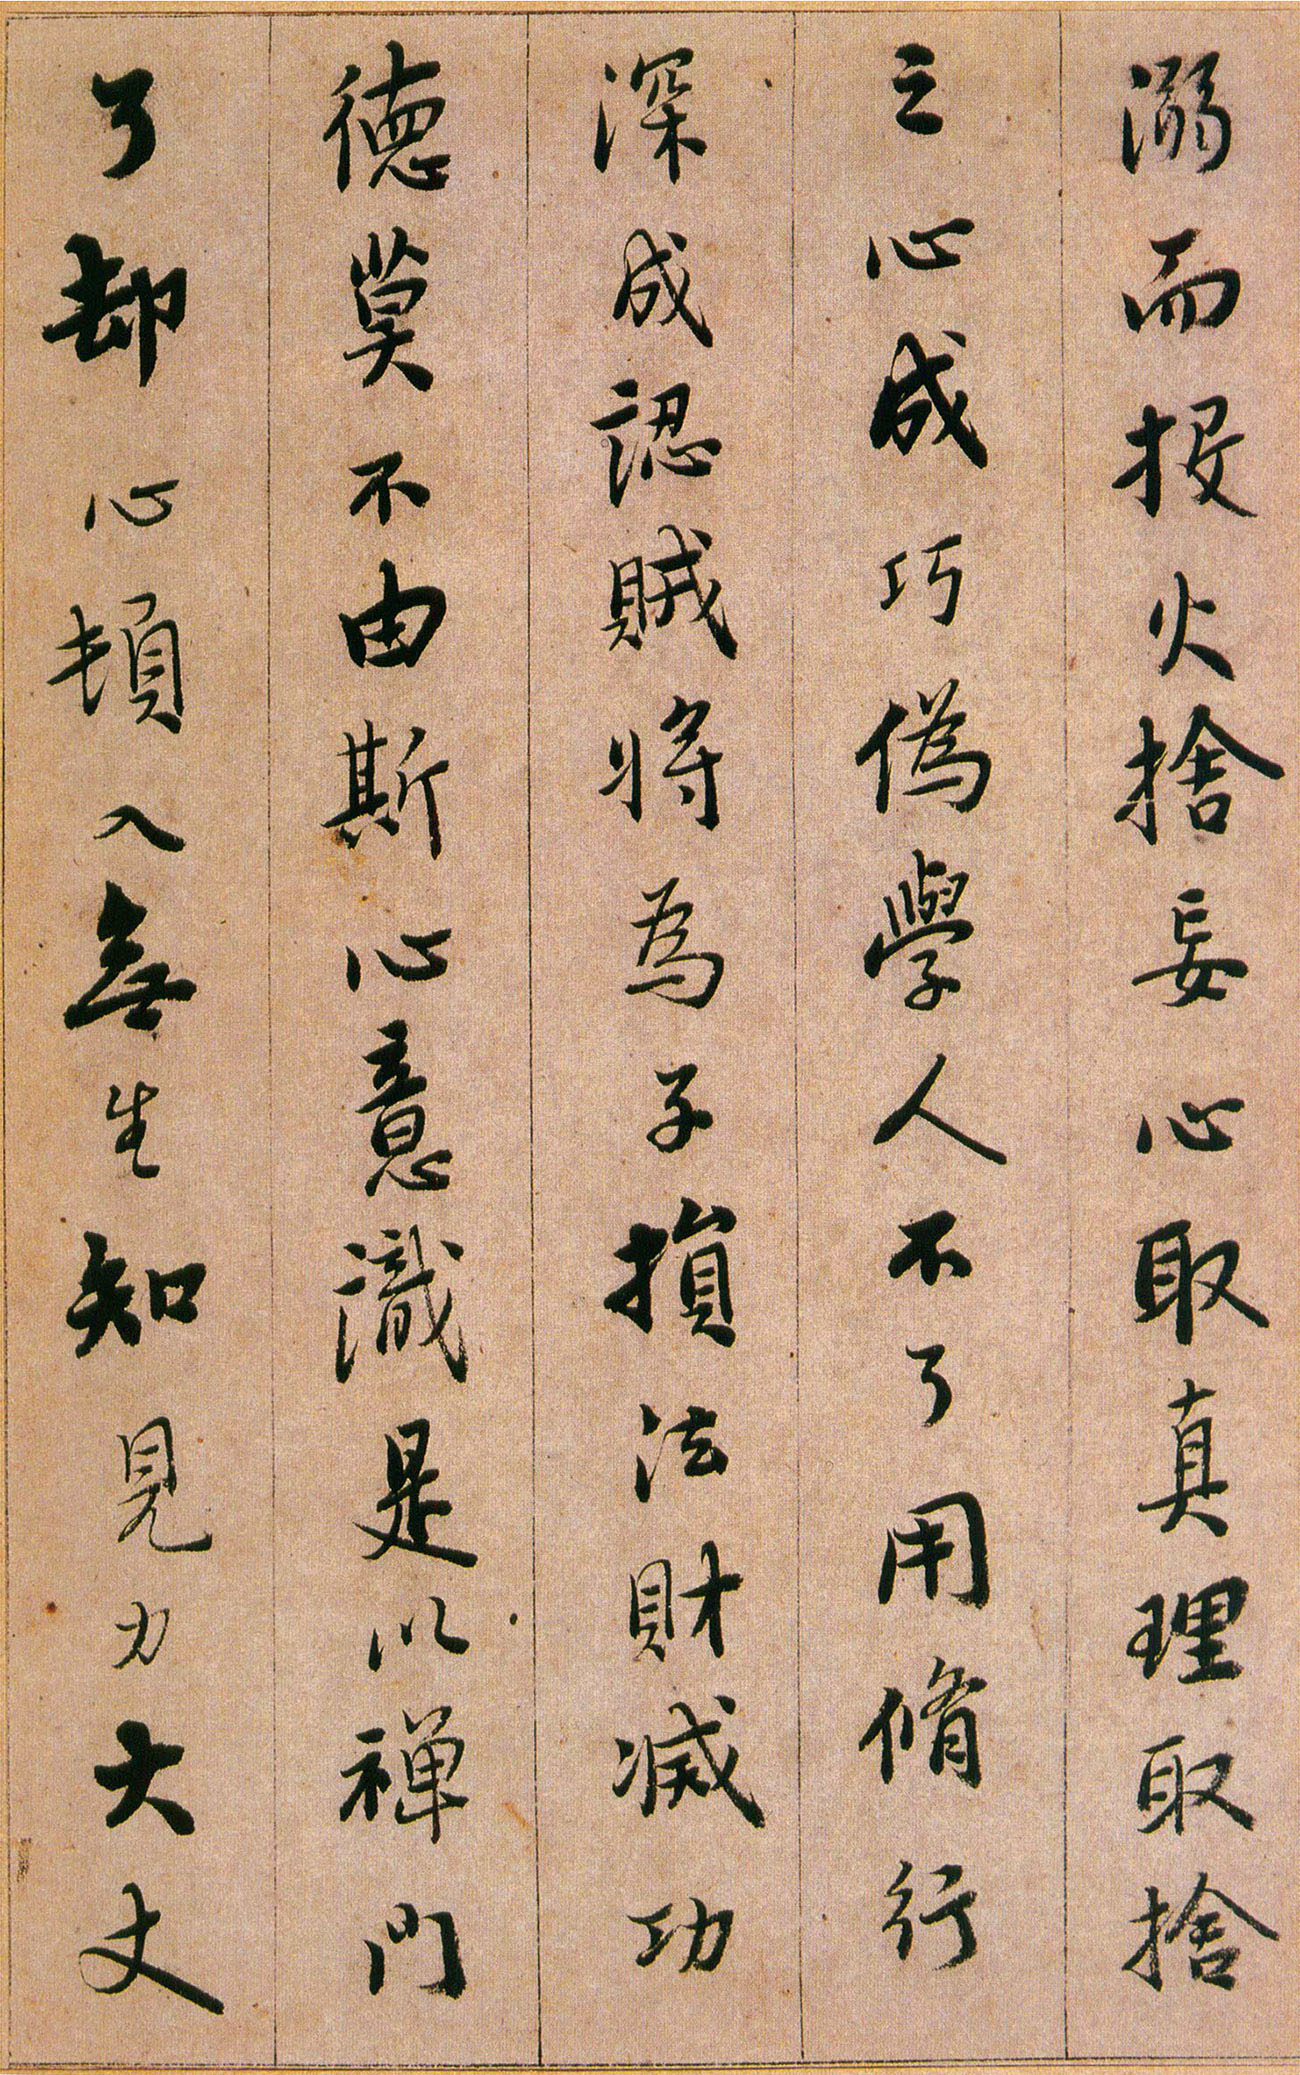 溺而投火捨妄心取真理取捨
之心成巧偽學人不了用脩行
深成認賊將為子損法財滅功
德莫不由斯心意識是以禅門
了却心頓入無生知見力大丈